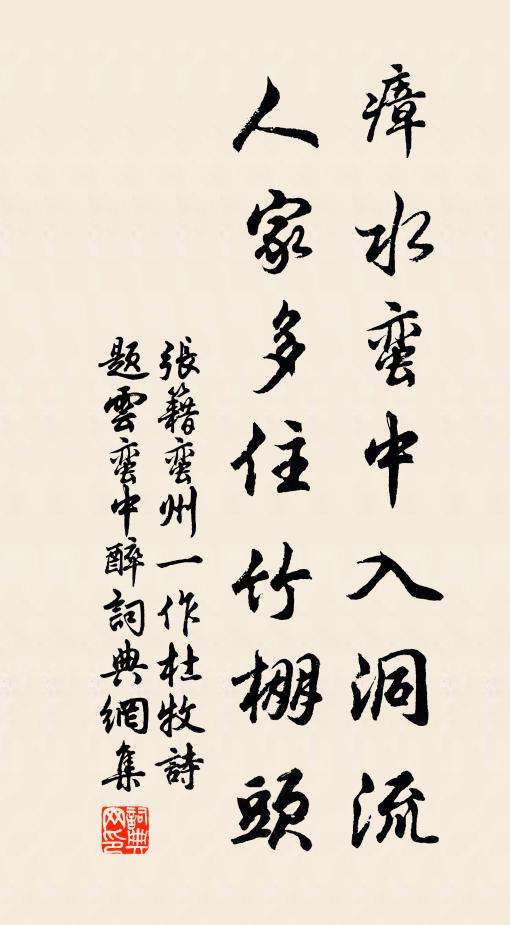 瘴水蛮中入洞流
人家多住竹棚頭
張籍蛮州一作杜牧詩
題雲蛮中醉詞典網集
詞典网印